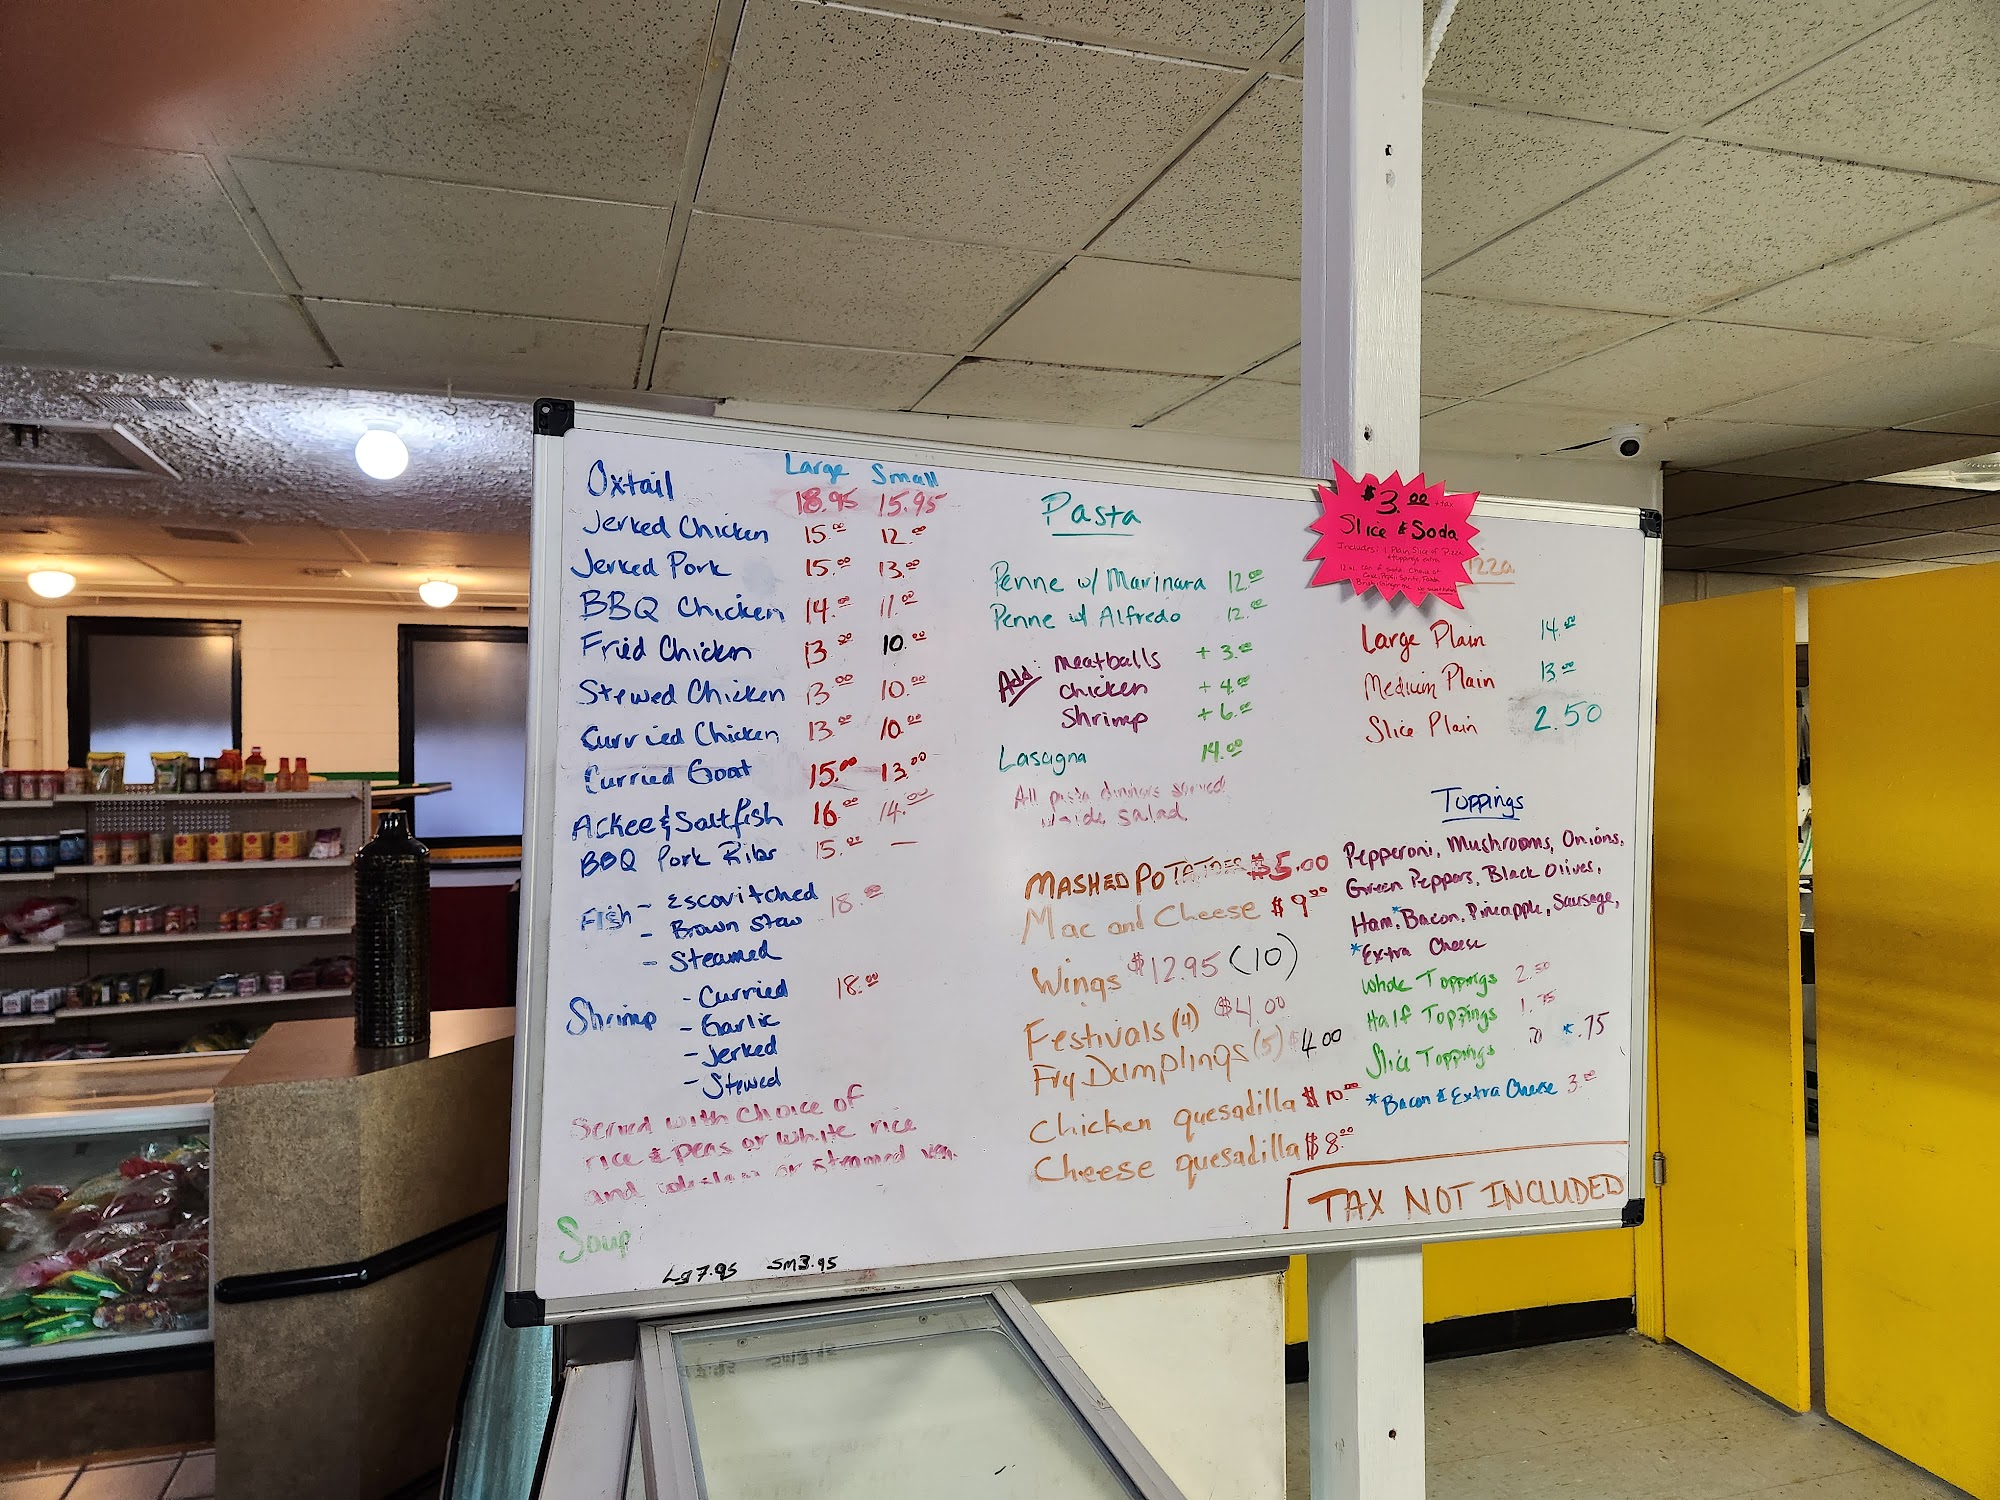 Large Small
Oxtail 18.95 15.95
Jerked Chicken 15.00 12.00
Jerked Pork 15.00 13.00
BBQ Chicken 14.00 11.00
Fried Chicken 13.00 10.00
Stewed Chicken 13.00 10.00
Curried Chicken 13.00 10.00
Curried Goat 15.00 13.00
Ackee & Saltfish 16.00 14.00
BBQ Pork Ribs 15.00 —
Fish - Escovitched 18.00
- Brown Stew
- Steamed
Shrimp - Curried 18.00
- Garlic
- Jerked
- Stewed
Served with Choice of
rice & peas or white rice
and coleslaw or steamed veg.
Soup
Lg 7.95 Sm 3.95
Pasta
Penne w/ Marinara 12.00
Penne w/ Alfredo 12.00
Add: meatballs + 3.00
chicken + 4.00
Shrimp + 6.00
Lasagna 14.00
All pasta dinners served
salad
MASHED POTATOES $5.00
Mac and Cheese $9.00
Wings $12.95 (10)
Festivals (4) $4.00
Fry Dumplings (5) $4.00
Chicken quesadilla $10.00
Cheese quesadilla $8.00
$3.00 +tax
Slice & Soda
Includes: 1 Plain Slice of Pizza
*toppings extra
12 oz can of soda Choice of
Coke, Pepsi, Sprite, Fanta
izza
Large Plain 14.00
Medium Plain 13.00
Slice Plain 2.50
Toppings
Pepperoni, Mushrooms, Onions,
Green Peppers, Black Olives,
Ham, *Bacon, Pineapple, Sausage,
*Extra Cheese
Whole Toppings 2.50
Half Toppings 1.75
Slice Toppings *.75
*Bacon & Extra Cheese 3.00
TAX NOT INCLUDED